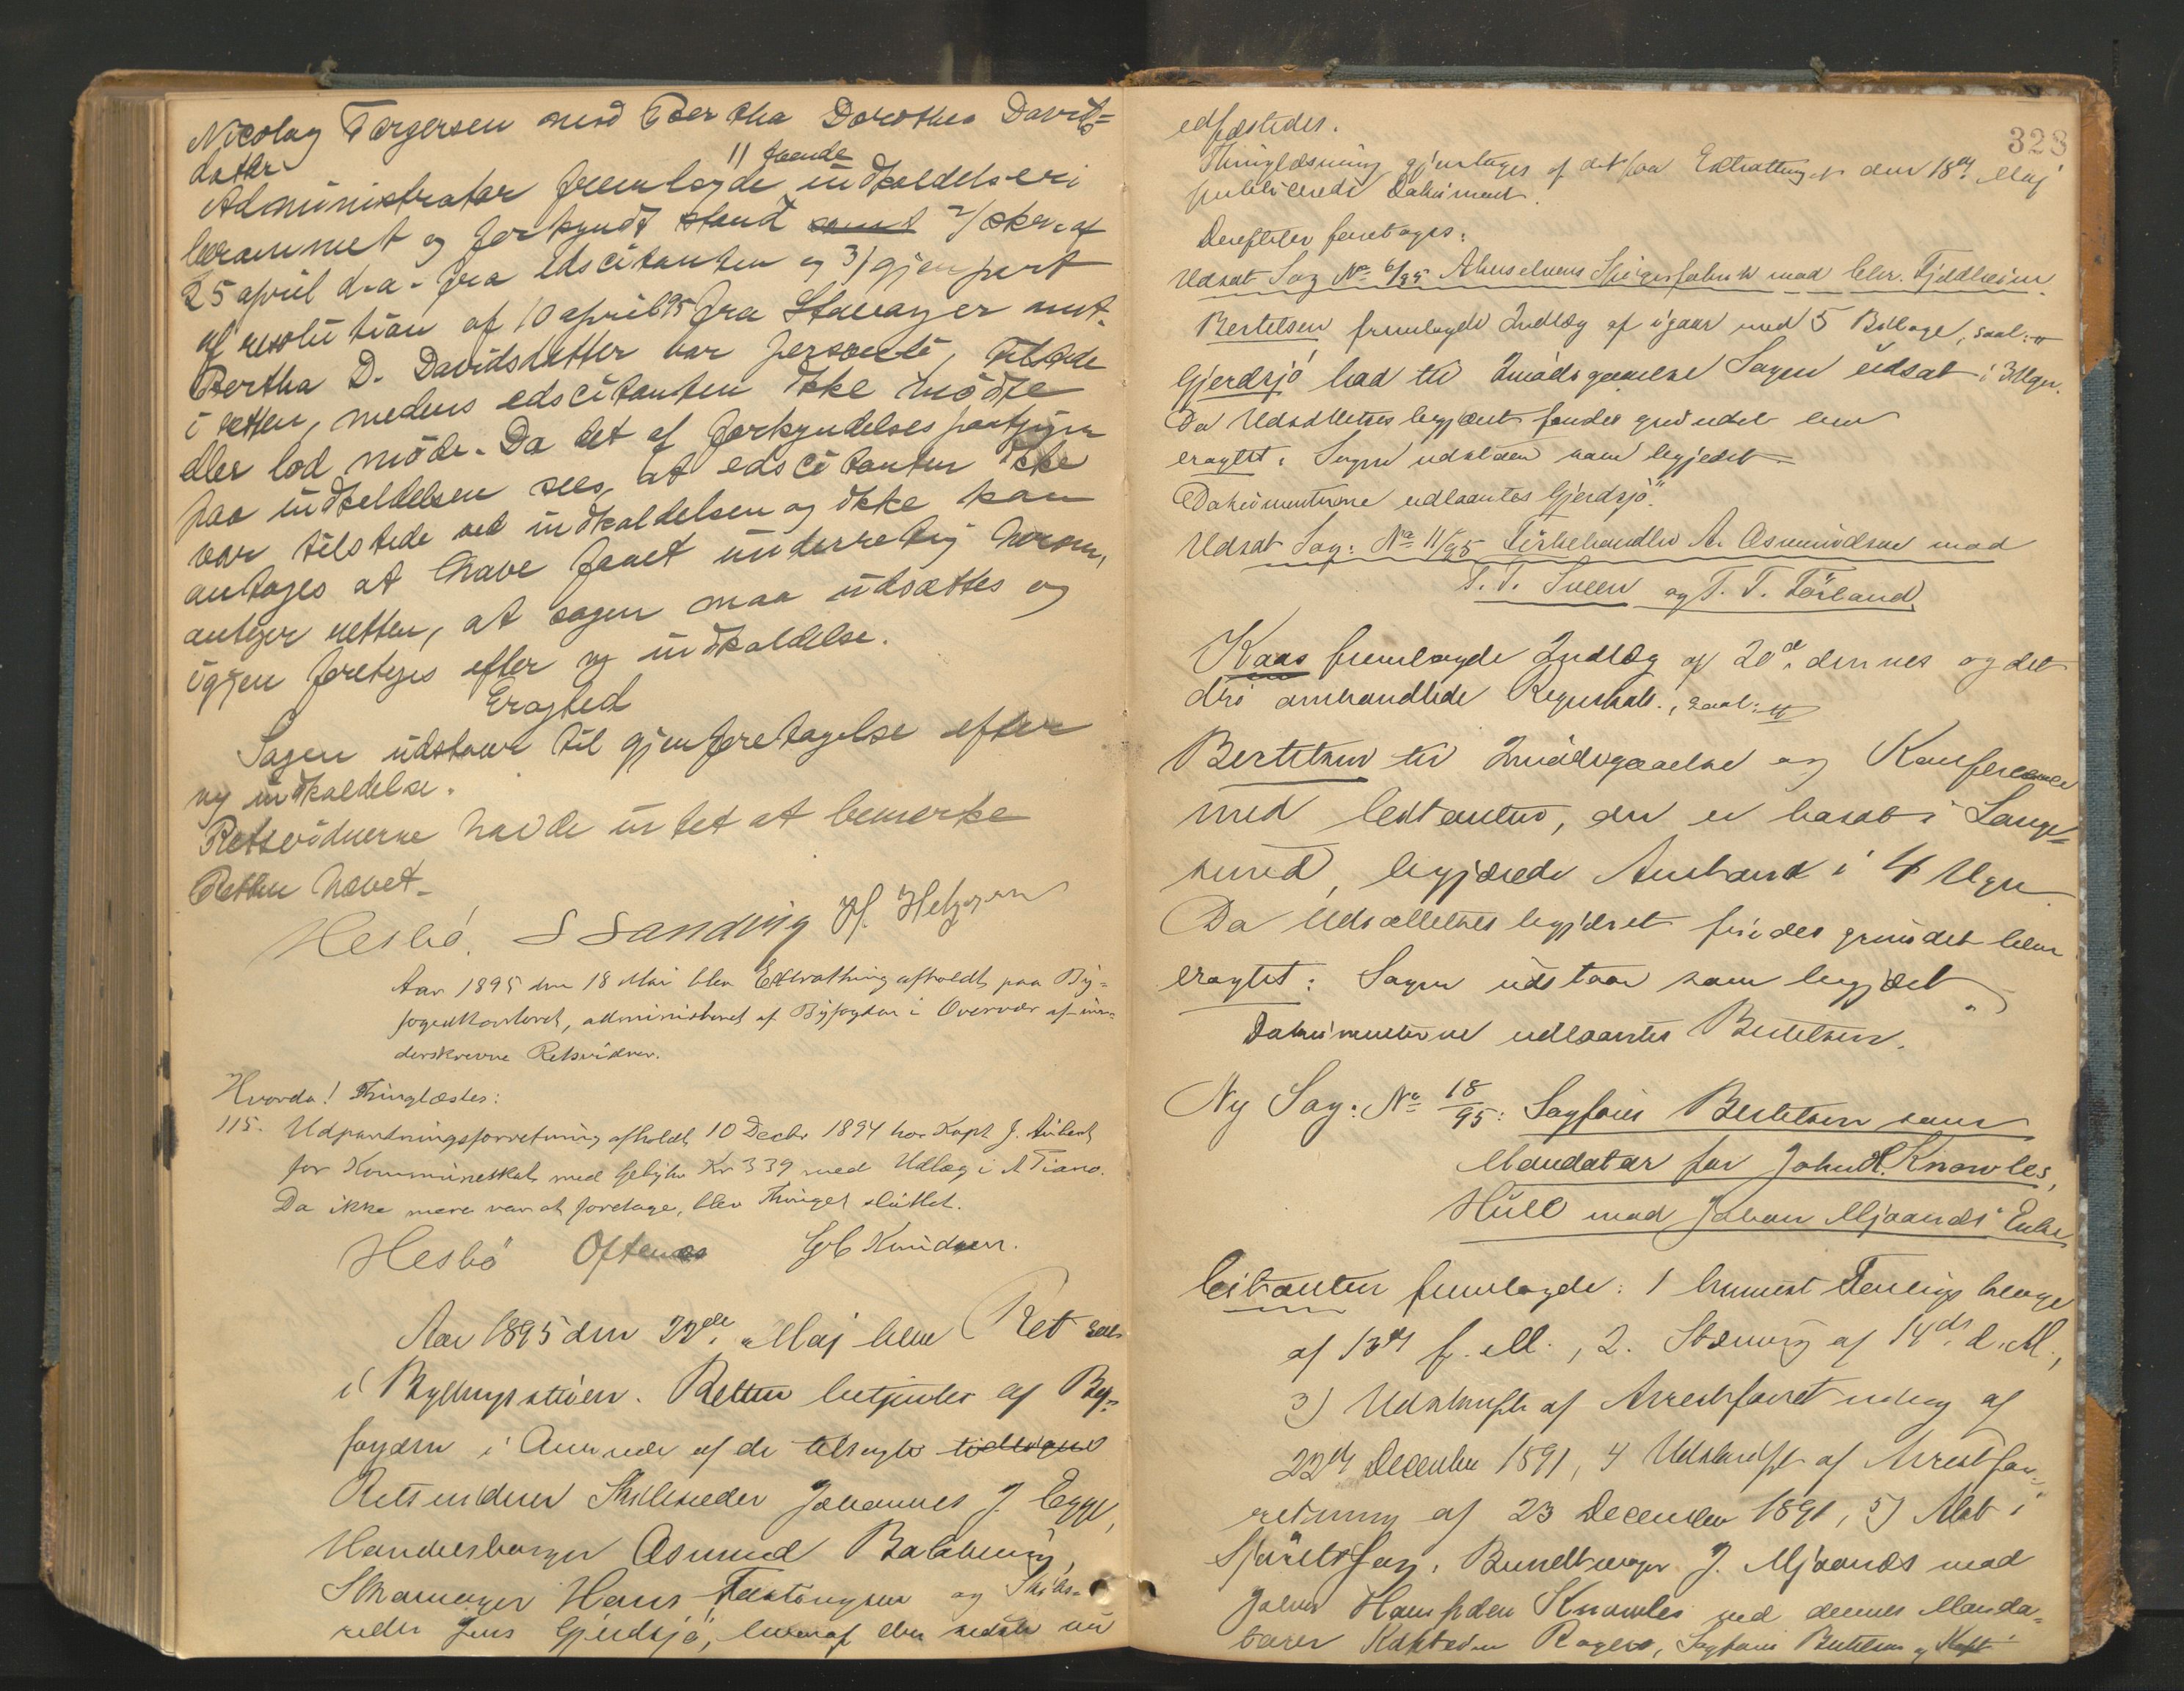 Nicolay Torgersen mod Bertha Dorothea Davids=
datter
Administrator fremlagde 1) foende indkaldelse i
berammet og forkyndt stand samt 2/ skr. af
25 april d.a. fra edscitanten og 3) gjenpart
af resolution af 10 april 95 fra Stavanger amt.
Bertha D. Davidsdatter var personlig tilstede
i retten, medens edscitanten ikke mødte
eller lod møde. Da det af forkyndelses paategn
paa indkaldelsen sees, at edscitanten ikke
var tilstede ved indkaldelsen og ikke kan
antages at have faaet underretnig herom,
antager retten, at sagen maa udsættes og
igjen foretages efter ny indkaldelse.
Eragted
Sagen udstaar til gjenforetagelse efter
ny indkaldelse.
Retsvidnerne havde intet at bemerke
Retten hævet.
Hesbö. S Sanding H. Helgesen
Aar 1895 den 18 Mai blev Extrathing afholdt paa By=
fogedkontoret, administreret af Byfogden i Overvær af un=
derskrevne Retsvidner.
Hvorda! Thinglæstes:
115. Udpantningsforretning afholdt 10 Decbr 1894 hos Kapt J.
for Kommuneskat med Gebyhr Kr 339 med Udlæg i 1 Piano.
Da ikke mere var at foretage, blev Thinget sluttet.
Hesbö Oftenes Knudsen.
Aar 1895 den 22de Maj blev Ret sat
i Bythingsstuen. Retten betjentes af By=
fogden i Overvær af de tilsagte
Retsvidner Skibsreder Johannes J. Egge,
Handelsborger Asmund
Skomager Hans og Skibs=
reder Jens Gjerdsjö, hvoraf den sidste nu
328
edfæstedes.
Thinglæsning gjentages af det paa Extrathinget den 18de Maj
publicerede Dokument.
Derefter foretages:
Udsat Sag No 6/95 Akerselvens Spigerfabrik mod Chr. Fjeldheim
Bertelsen fremlagde Indlæg af igaar med 5 Bilage, saal:
Gjerdsjö bad til Imødegaaelse Sagen udsat i 3 Uger.
Da Udsættelses begjæret findes grundet blev
eragtet: Sagen udstaar som begjæret
Dokumenterne udlaantes Gjerdsjö.
Udsat Sag: No 11/95 A. Asmundsen mod
T. T. Sveen og T. T. Förland
Kaas fremlagde Indlæg af 20de dennes og det
deri omhandlede Regnskab., saal:
Bertelsen til Imødegaaelse og Konferance
med Citanten, der er bosat i Lange=
sund, begjærede Anstand i 4 Uger
Da Udsættelses begjæret findes grundet blev
eragtet: Sagen udstaar som begjæret
Dokumenterne udlaantes Bertelsen.
Ny Sag: No 18/95: Sagfører Bertelsen som
Mandatar for John H. Knowles,
Hull mod Johan Mjaands Enke
Citanten fremlagde: 1
af 13de f. M., 2. Stævning af 14de d. M.,
3) Udskrift af Arrestforretning af
22de December 1891, 4 Udskrift af Arrestfor=
retning af 23 December 1891, 5) Akt i
Sjøretssag, Bundtmager J. Mjaands mod
John Hampden Knowles ved dennes Manda=
tarer Kaptein Rogers, Sagfører Bertelsen og